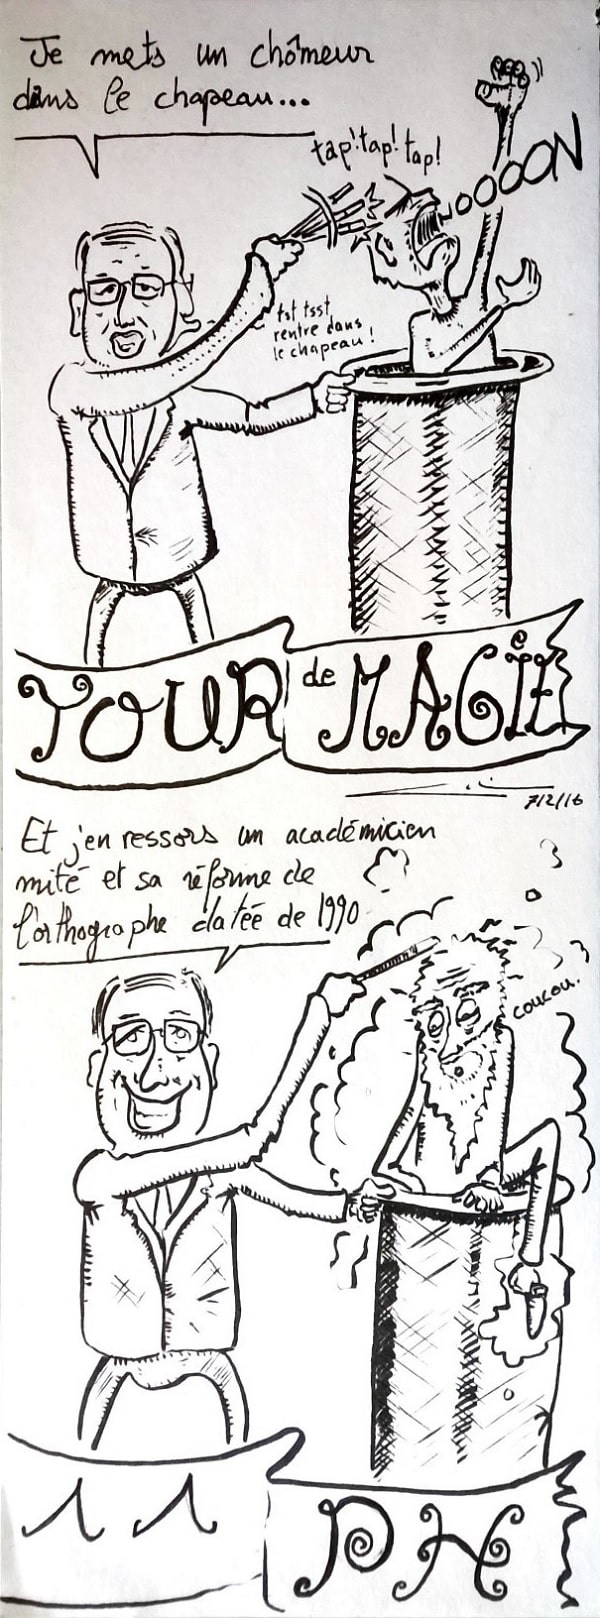 Je mets un chômeur
dans le chapeau...
tap! tap! tap!
NOOOON
tst tsst
rentre dans
le chapeau!
TOUR de MAGIE
7/2/16
Et j'en ressors un académicien
mité et sa réforme de
l'orthographe datée de 1990
coucou.
PH